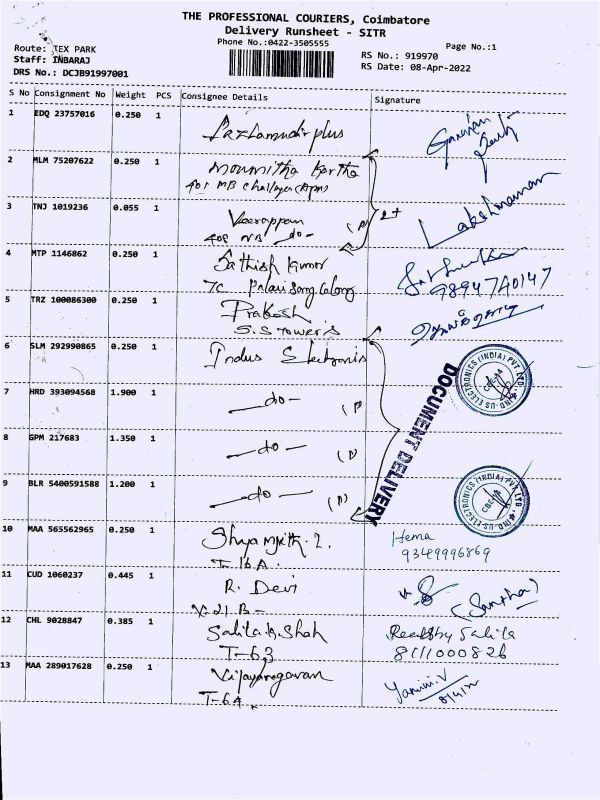 THE PROFESSIONAL COURIERS, Coimbatore
Delivery Runsheet - SITR
Phone No.:0422-3505555
Page No.:1
Route: TEX PARK
RS No.: 919970
Staff: INBARAJ
RS Date: 08-Apr-2022
DRS No.: DCJB91997001
S No Consignment No Weight PCS Consignee Details Signature
1 EDQ 23757016 0.250 1 plus
2 MLM 75207622 0.250 1 Moumitha Kartha
401 MB
3 TNJ 1019236 0.055 1 Veerappan Lakshmanan
do (P)
4 MTP 1146862 0.250 1 Sathish Kumar
7C 9894740147
5 TRZ 100086300 0.250 1 Prakash
S.S Towers
6 SLM 292990865 0.250 1 Indus Electronis
DOCUMENT DELIVERY
IND-US ELECTRONICS (INDIA) PVT LTD.
CBE-14
7 HRD 393094568 1.900 1 —do— (P)
8 GPM 217683 1.350 1 —do— (P)
9 BLR 5400591588 1.200 1 —do— (P)
IND-US ELECTRONICS (INDIA) PVT LTD.
10 MAA 565562965 0.250 1 Hema
T-16A. 9349996869
11 CUD 1060237 0.445 1 R. Devi
V-21.B- (Santha)
12 CHL 9028847 0.385 1 Salila.k.Shah Recd by Salila
T-63 8111000826
13 MAA 289017628 0.250 1 Vijayaragavan Yamini.V
T-64.